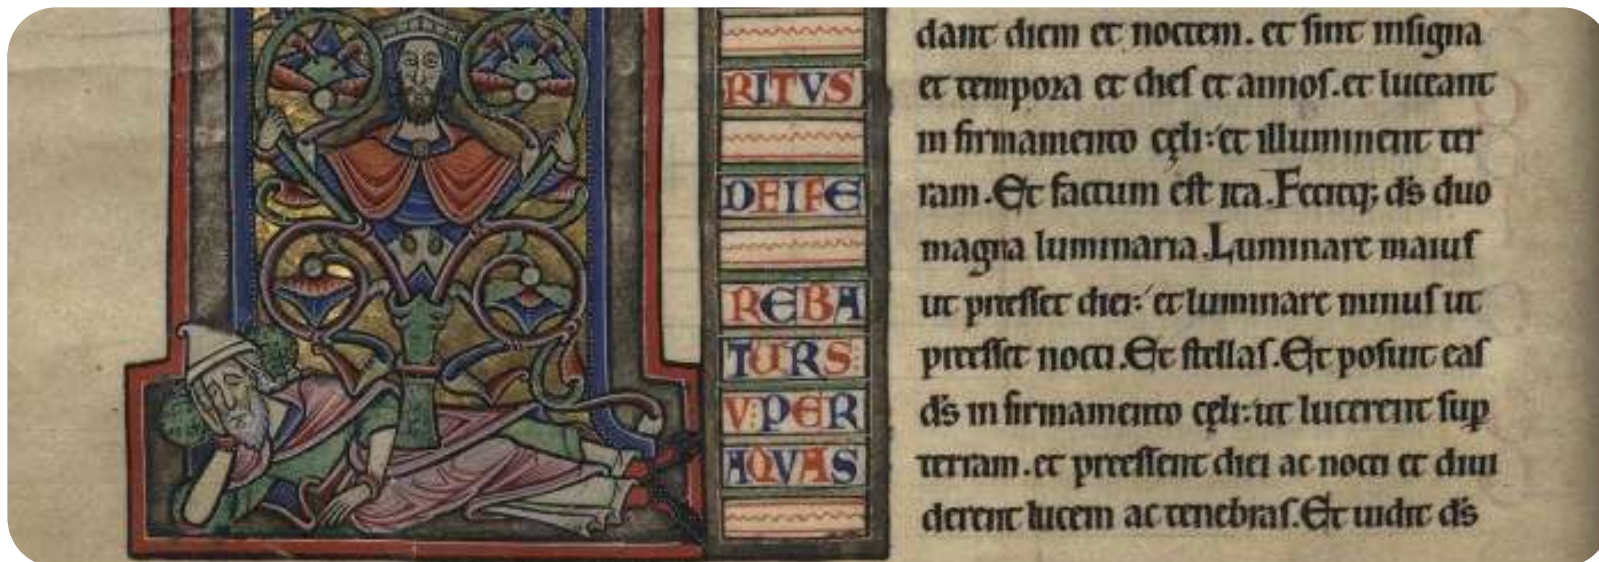 RITVS
DEIFE
REBA
TURS:
V:PER
AQVAS
dant diem et noctem. et sint insigna
et tempora et dies et annos. et luceant
in firmamento cęli: et illuminent ter
ram. Et factum est ita. Fecitq; ds duo
magna luminaria. Luminare maius
ut preesset diei: et luminare minus ut
preesset nocti. Et stellas. Et posuit eas
ds in firmamento cęli: ut lucerent sup
terram. et preessent diei ac nocti et diui
derent lucem ac tenebras. Et uidit ds